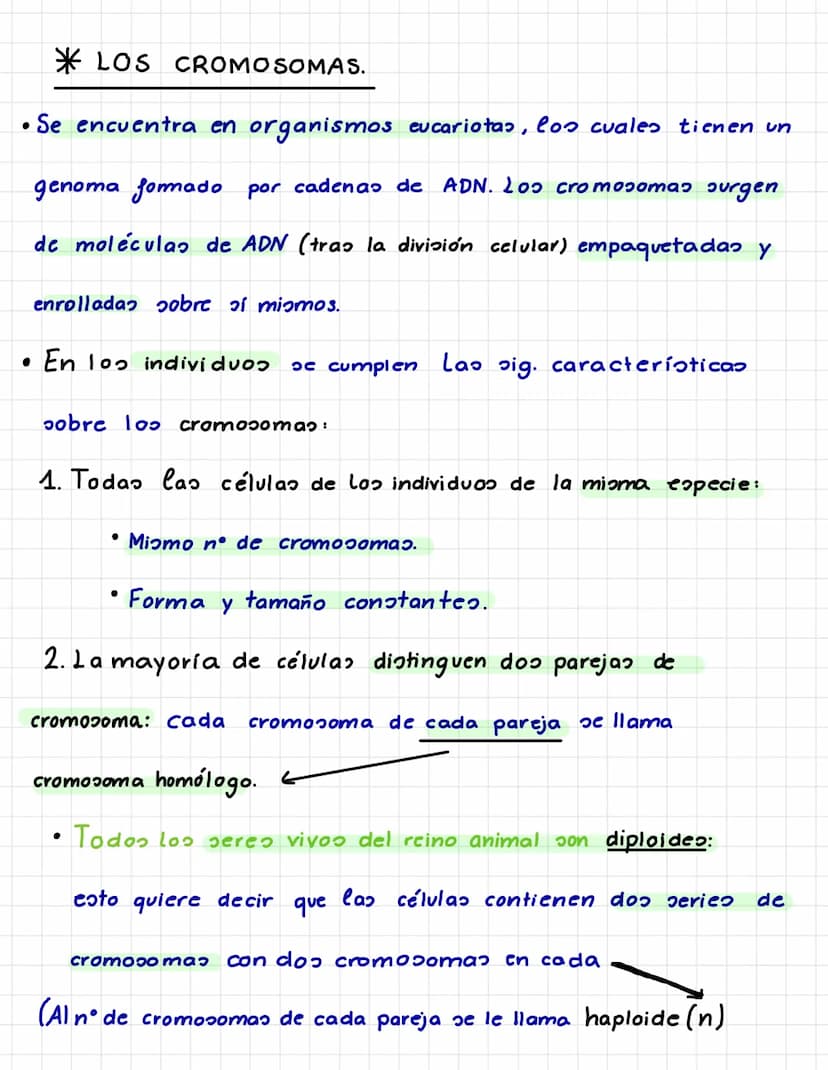 * LOS CROMOSOMAS.
• Se encuentra en organismos eucariotas, los cuales tienen un
genoma formado por cadenas de ADN. Los cromosomas surgen
de moléculas de ADN (tras la división celular) empaquetadas y
enrolladas sobre sí mismos.
• En los individuos se cumplen las sig. características
sobre los cromosomas:
1. Todas las células de los individuos de la misma especie:
• Mismo nº de cromosomas.
• Forma y tamaño constantes.
2. La mayoría de células distinguen dos parejas de
cromosoma: cada cromosoma de cada pareja se llama
cromosoma homólogo.
• Todos los seres vivos del reino animal son diploides:
esto quiere decir que las células contienen dos series de
cromosomas con dos cromosomas en cada
(Al nº de cromosomas de cada pareja se le llama haploide (n)